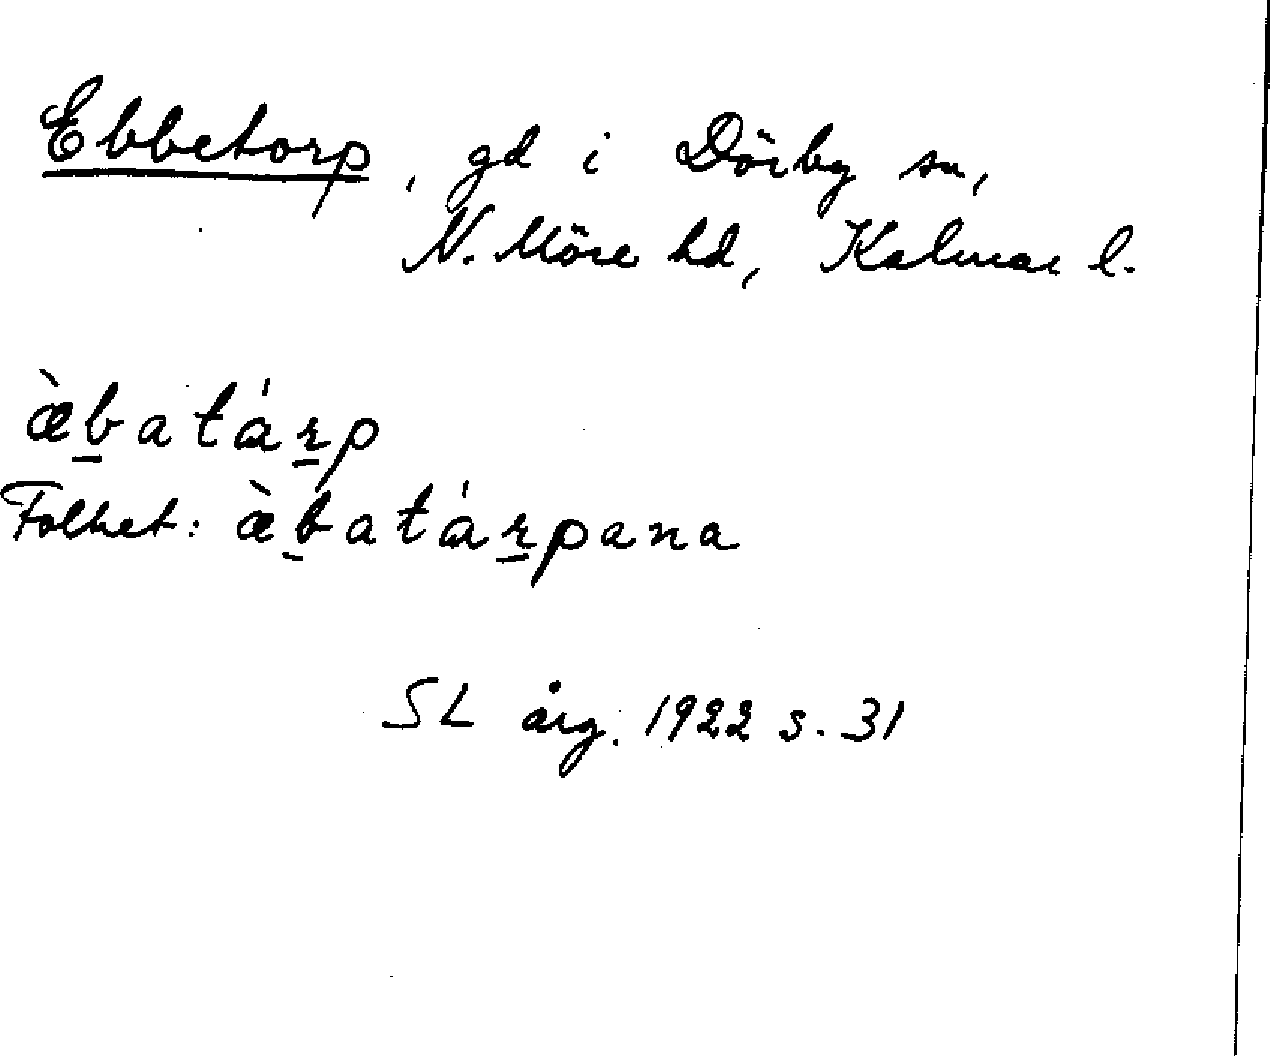 Ebbetorp, gd i Dörby sn,
N. Möre hd, Kalmar l.
æ̀b̲atár̲p
Folket: æ̀b̲atár̲pana
SL årg. 1922 s. 31